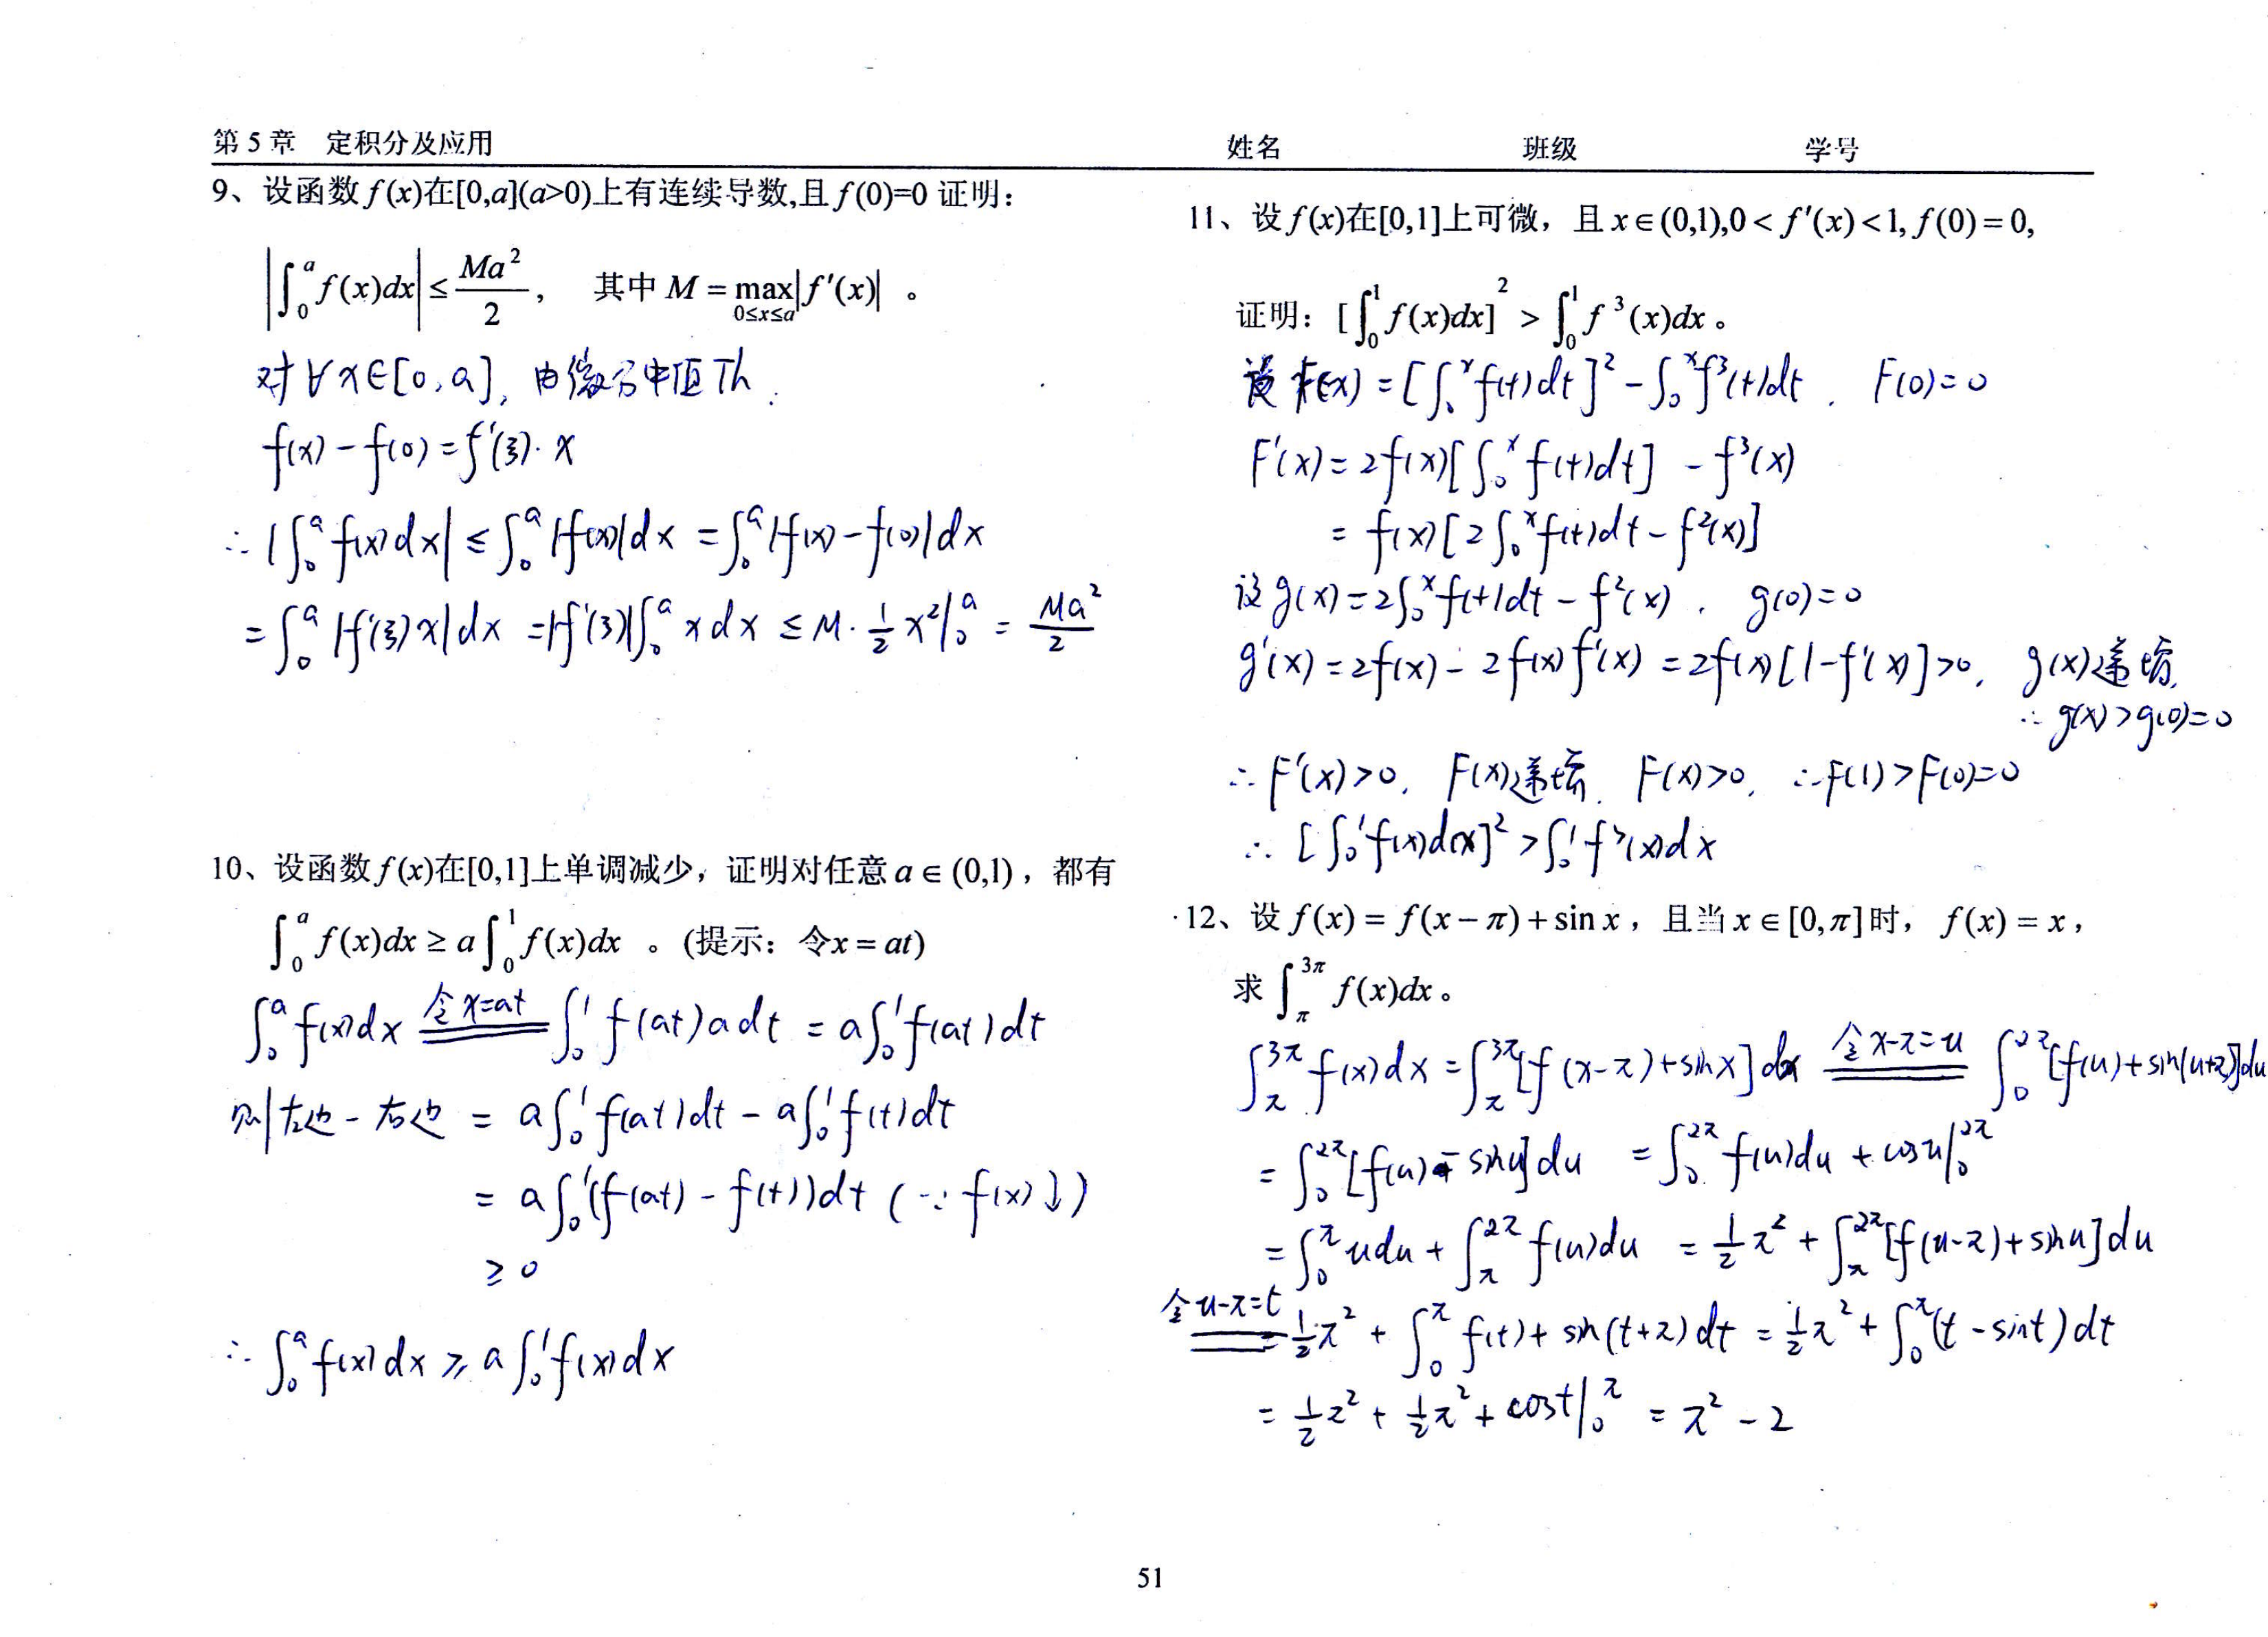 第 5 章 定积分及应用
姓名 班级 学号
9、设函数 f(x)在[0,a](a>0)上有连续导数,且 f(0)=0 证明：
|∫₀ᵃ f(x)dx| ≤ Ma²/2， 其中 M = max_{0≤x≤a}|f′(x)| 。
对∀x∈[0,a], 由微分中值Th.
f(x)-f(0)=f′(ξ)·x
∴ |∫₀ᵃ f(x)dx| ≤ ∫₀ᵃ |f(x)|dx = ∫₀ᵃ |f(x)-f(0)|dx
= ∫₀ᵃ |f′(ξ)x|dx = |f′(ξ)|∫₀ᵃ xdx ≤ M·½x²|₀ᵃ = Ma²/2
10、设函数 f(x)在[0,1]上单调减少，证明对任意 a∈(0,1)，都有
∫₀ᵃ f(x)dx ≥ a∫₀¹ f(x)dx 。(提示：令x = at)
∫₀ᵃ f(x)dx 令x=at ∫₀¹ f(at)adt = a∫₀¹ f(at)dt
则左边-右边 = a∫₀¹ f(at)dt - a∫₀¹ f(t)dt
= a∫₀¹ (f(at) - f(t))dt (∵ f(x)↓)
≥ 0
∴ ∫₀ᵃ f(x)dx ≥ a∫₀¹ f(x)dx
11、设 f(x)在[0,1]上可微，且 x∈(0,1),0 < f′(x) < 1, f(0) = 0,
证明：[∫₀¹ f(x)dx]² > ∫₀¹ f³(x)dx 。
设 F(x) = [∫₀ˣ f(t)dt]² - ∫₀ˣ f³(t)dt . F(0)=0
F′(x) = 2f(x)[∫₀ˣ f(t)dt] - f³(x)
= f(x)[2∫₀ˣ f(t)dt - f²(x)]
设 g(x) = 2∫₀ˣ f(t)dt - f²(x) . g(0)=0
g′(x) = 2f(x) - 2f(x)f′(x) = 2f(x)[1-f′(x)]>0, g(x)递增,
∴ g(x)>g(0)=0
∴ F′(x)>0, F(x)递增, F(x)>0, ∴F(1)>F(0)=0
∴ [∫₀¹ f(x)dx]² > ∫₀¹ f³(x)dx
12、设 f(x) = f(x-π) + sin x，且当 x∈[0,π]时， f(x) = x，
求 ∫_π^{3π} f(x)dx 。
∫_π^{3π} f(x)dx = ∫_π^{3π} [f(x-π)+sinx]dx 令x-π=u ∫₀^{2π} [f(u)+sin(u+π)]du
= ∫₀^{2π} [f(u) - sinu]du = ∫₀^{2π} f(u)du + cosu|₀^{2π}
= ∫₀^π udu + ∫_π^{2π} f(u)du = ½π² + ∫_π^{2π} [f(u-π)+sinu]du
令u-π=t = ½π² + ∫₀^π f(t)+ sin(t+π)dt = ½π² + ∫₀^π (t-sint)dt
= ½π² + ½π² + cost|₀^π = π² - 2
51